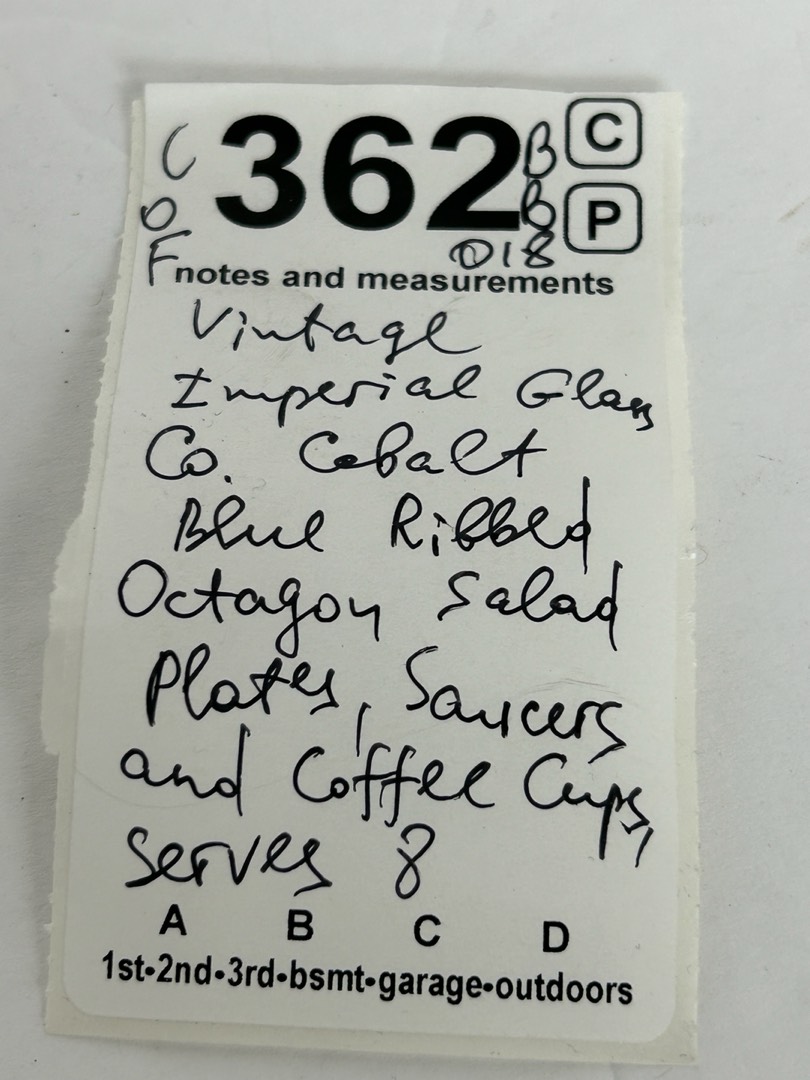 C 362 B C
O B P
F 018
notes and measurements
Vintage
Imperial Glass
Co. Cobalt
Blue Ribbed
Octagon Salad
Plates, Saucers
and Coffee Cups,
serves 8
A B C D
1st•2nd•3rd•bsmt•garage•outdoors